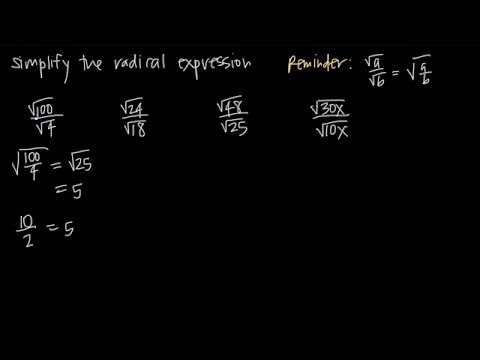 simplify the radical expression Reminder: √a/√b = √(a/b)
√100/√4 √24/√18 √48/√25 √30x/√10x
√(100/4) = √25
= 5
10/2 = 5